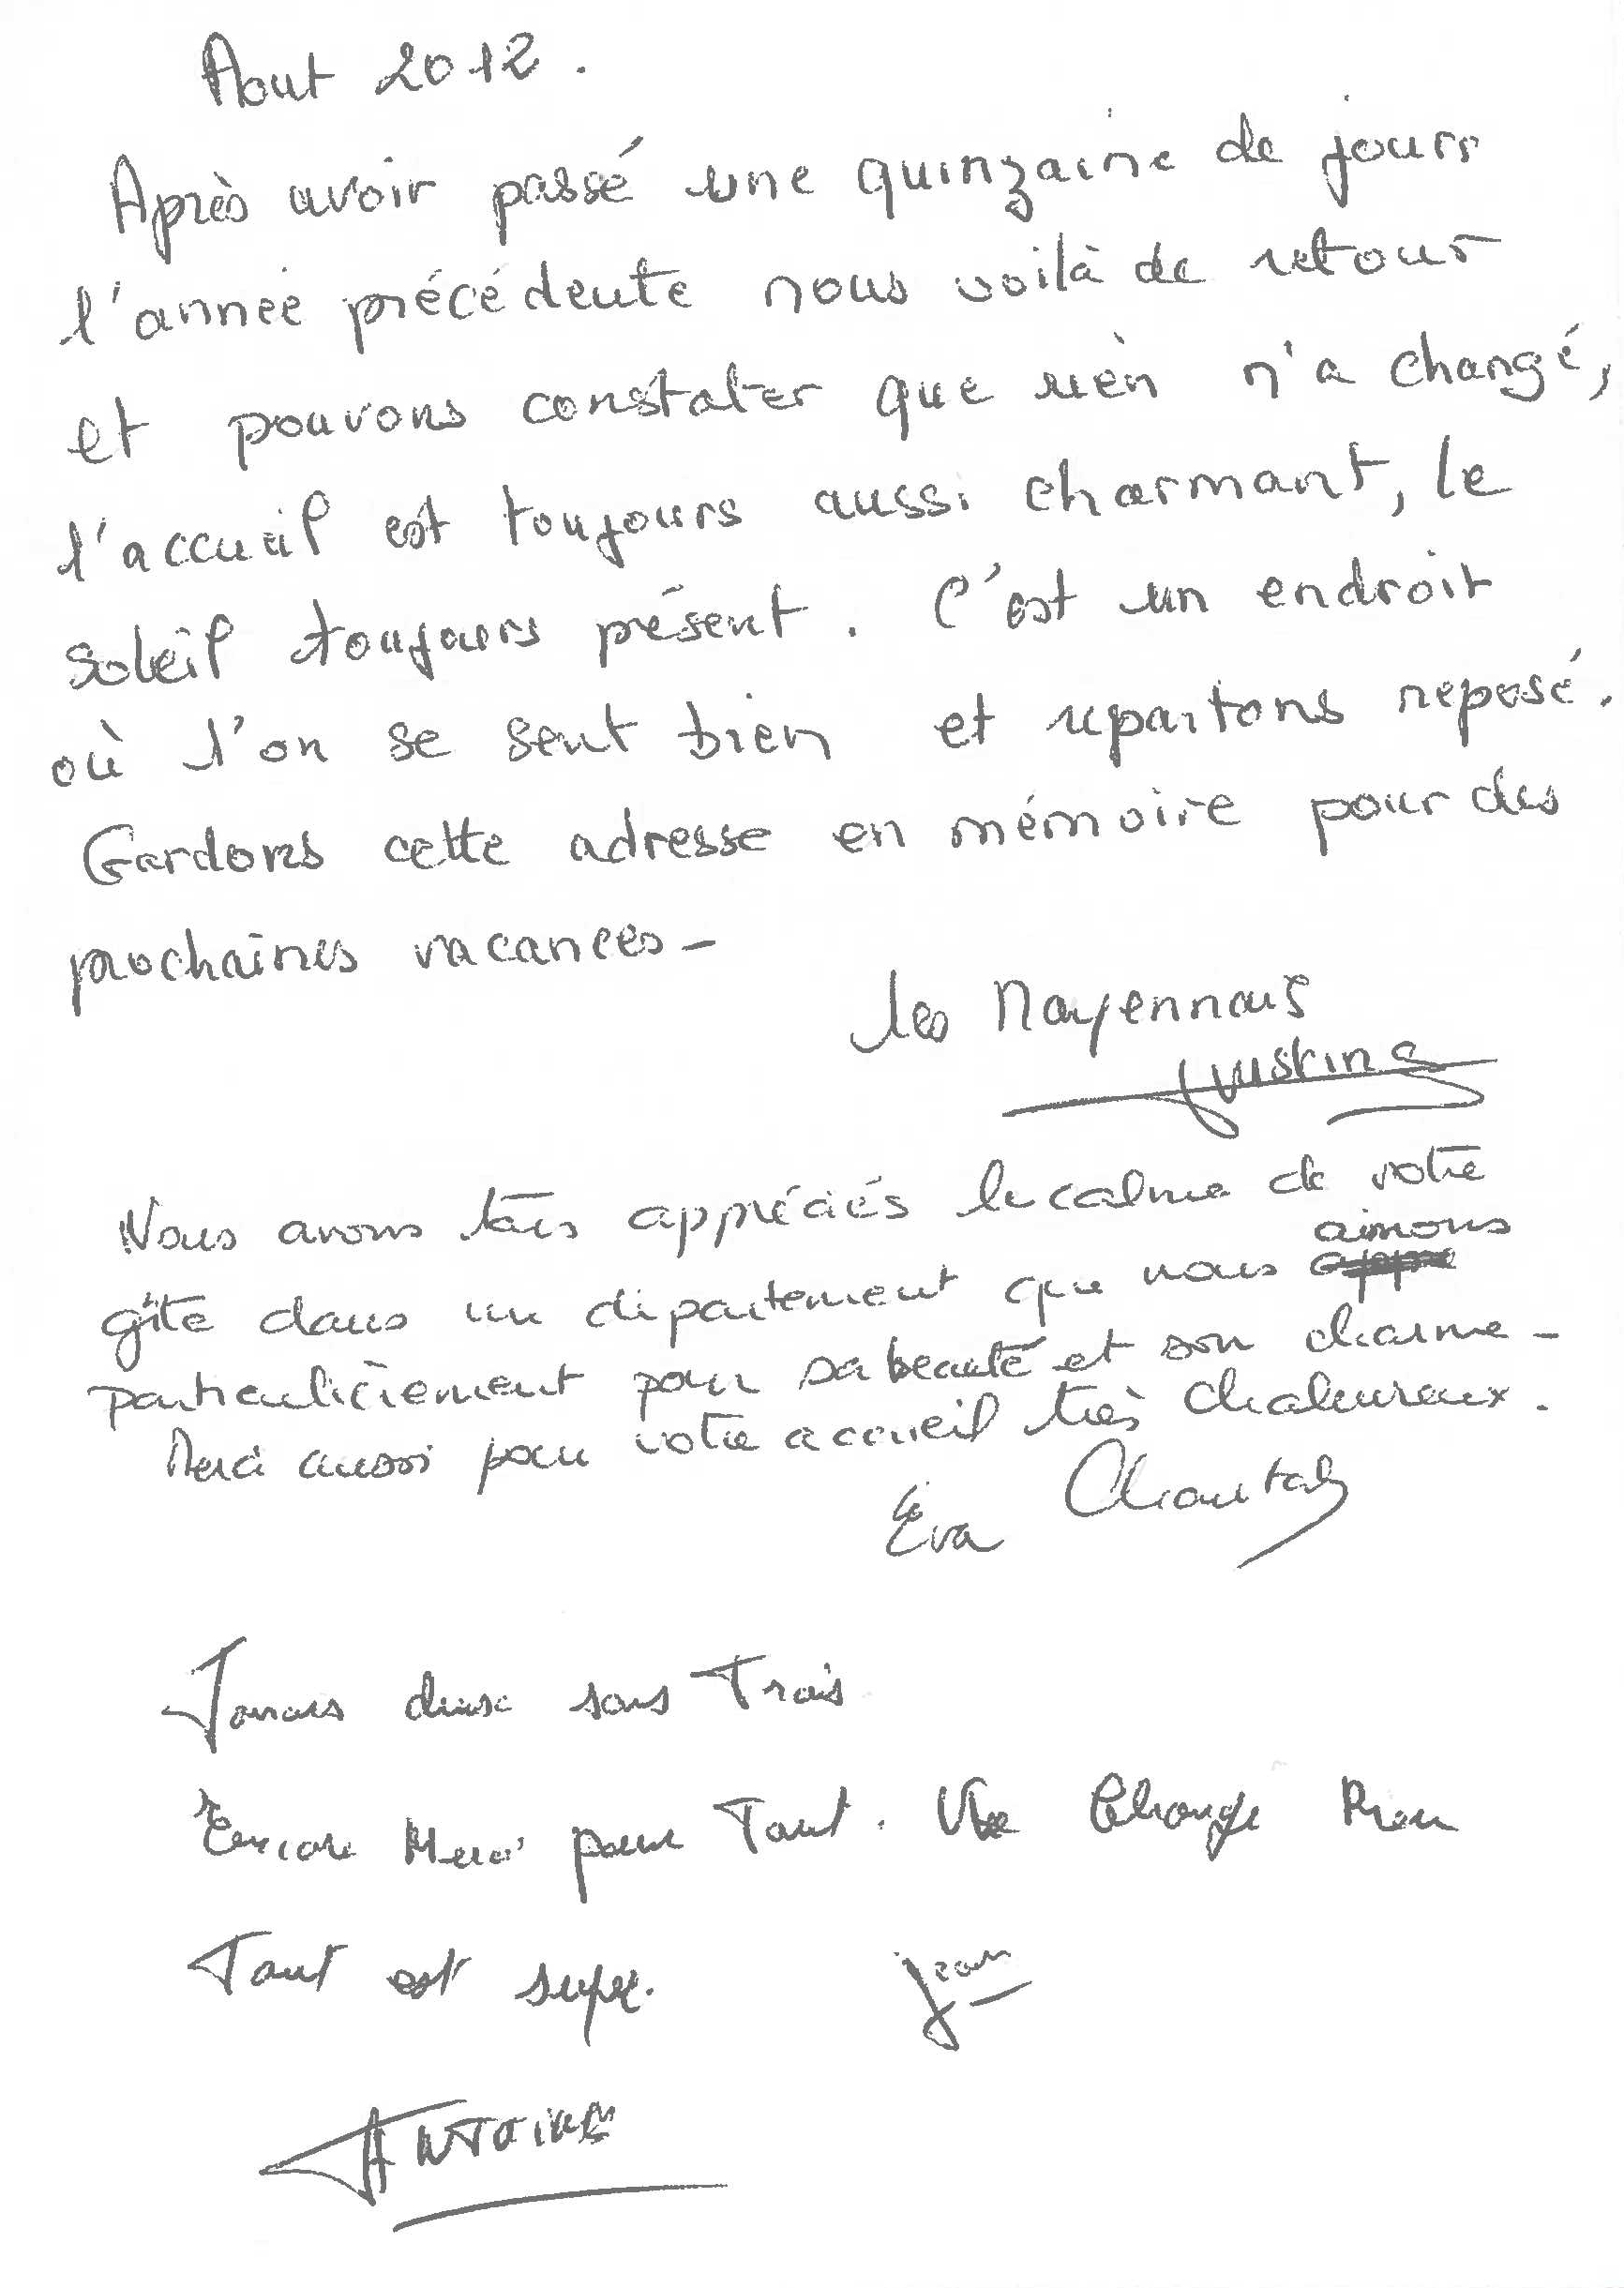 Aout 2012.
Après avoir passé une quinzaine de jours
l'année précédente nous voilà de retour
et pouvons constater que rien n'a changé,
l'accueil est toujours aussi charmant, le
soleil toujours présent. C'est un endroit
où l'on se sent bien et repartons reposé.
Gardons cette adresse en mémoire pour des
prochaines vacances -
les Mayennais
Justine
Nous avons très appréciés le calme de votre
gîte dans un département que nous aimons
particulièrement pour sa beauté et son charme -
Merci aussi pour votre accueil très chaleureux.
Eva Chantal
Jamais deux sans Trois
Encore Merci pour Tout. Ne Change Rien
Tout est super.
Jean
ANTOINE